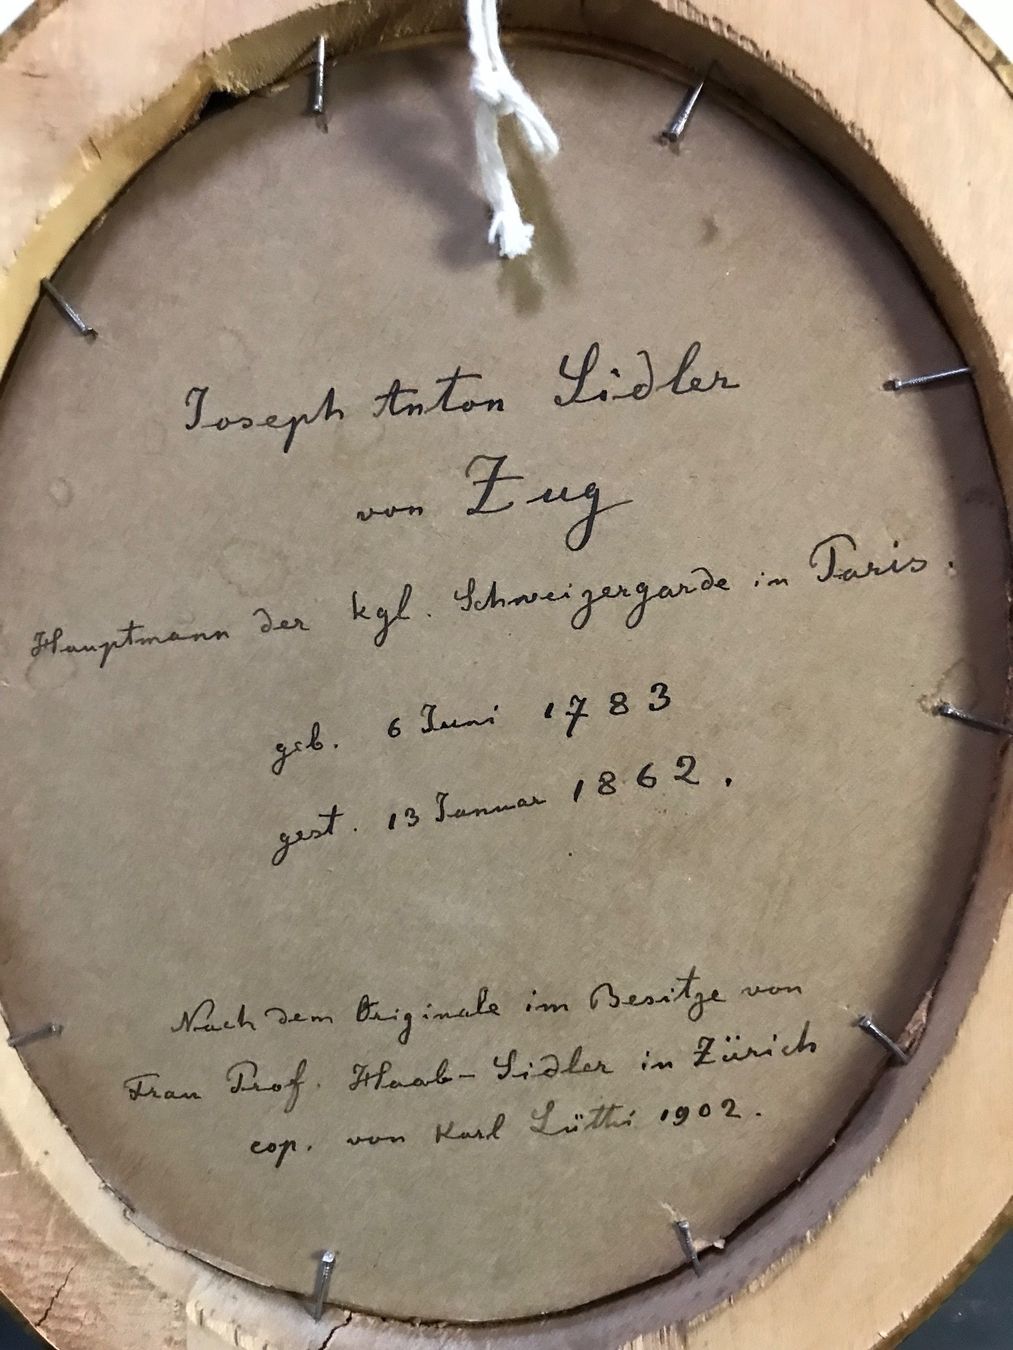 Joseph Anton Sidler
von Zug
Hauptmann der kgl. Schweizergarde in Paris.
geb. 6 Juni 1783
gest. 13 Januar 1862.
Nach dem Originale im Besitze von
Frau Prof. Haab-Sidler in Zürich
cop. von Karl Lüthi 1902.